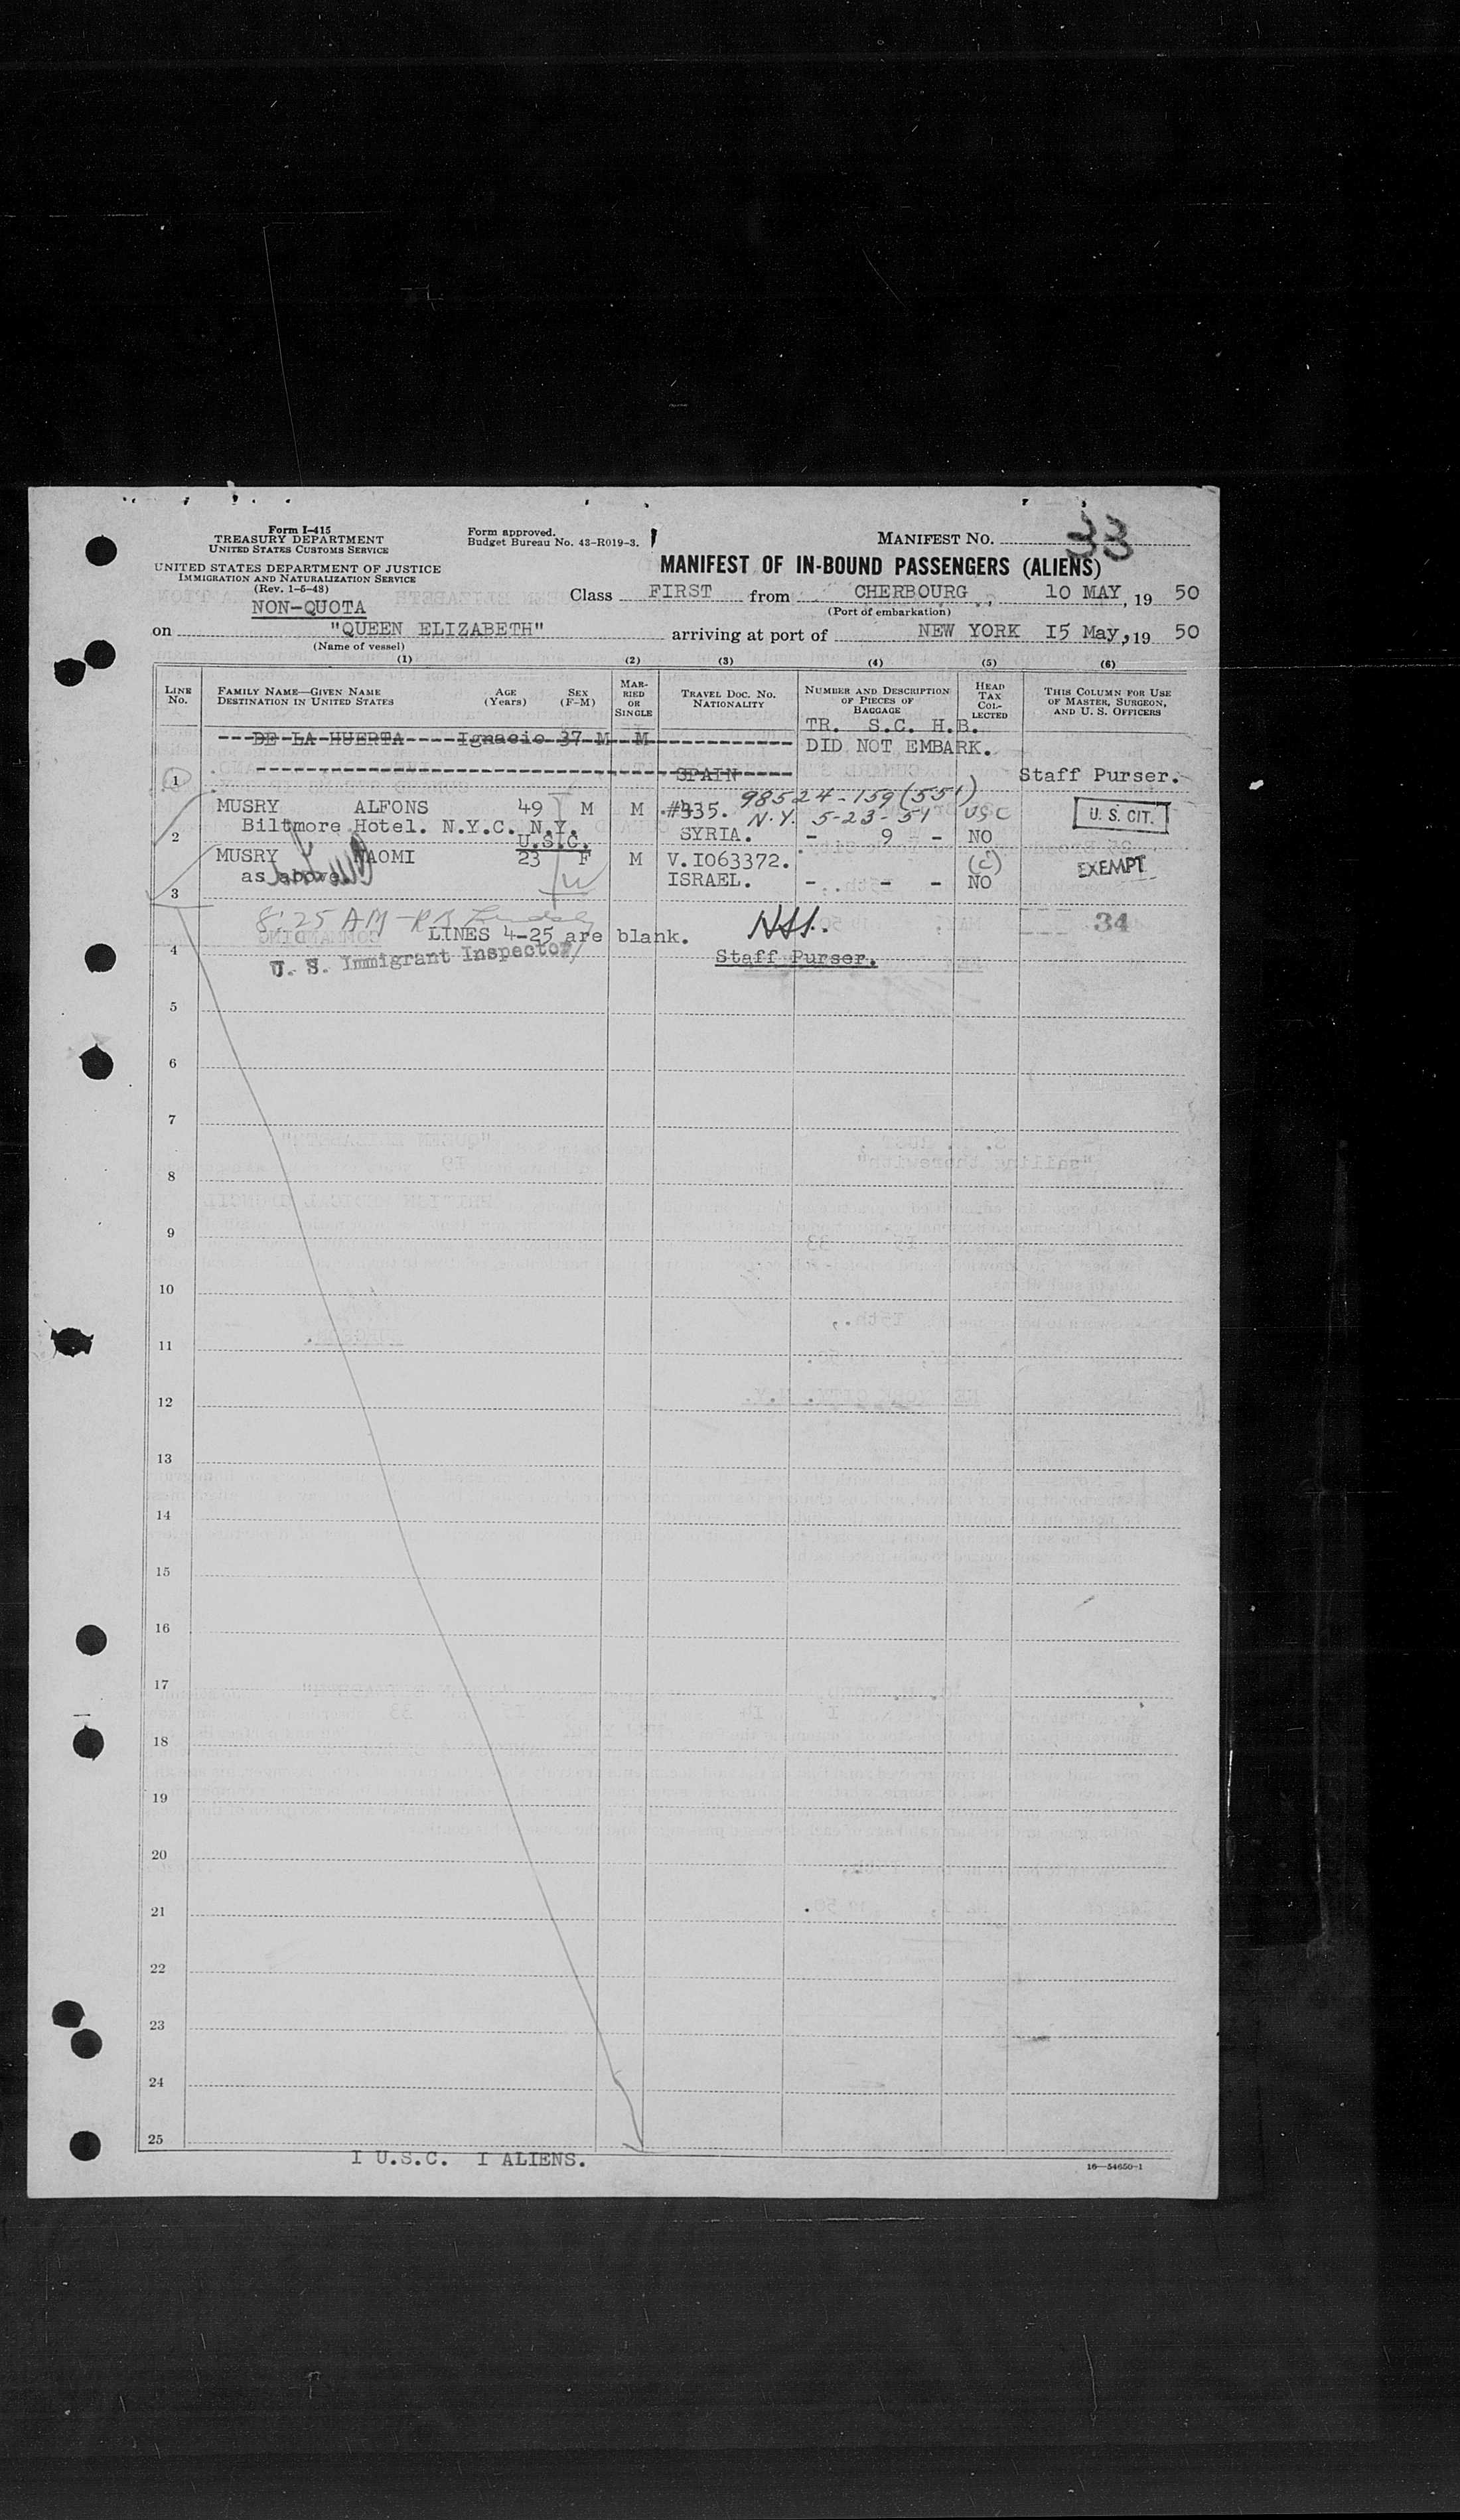 Form I-415
TREASURY DEPARTMENT
UNITED STATES CUSTOMS SERVICE
UNITED STATES DEPARTMENT OF JUSTICE
IMMIGRATION AND NATURALIZATION SERVICE
(Rev. 1-5-48)
NON-QUOTA
Form approved.
Budget Bureau No. 43-R019-3.
MANIFEST NO. 33
MANIFEST OF IN-BOUND PASSENGERS (ALIENS)
Class FIRST from CHERBOURG, 10 MAY, 19 50
(Port of embarkation)
on "QUEEN ELIZABETH" arriving at port of NEW YORK 15 May, 19 50
(Name of vessel)
(1) (2) (3) (4) (5) (6)
LINE No. FAMILY NAME—GIVEN NAME DESTINATION IN UNITED STATES AGE (Years) SEX (F-M) MARRIED OR SINGLE TRAVEL DOC. NO. NATIONALITY NUMBER AND DESCRIPTION OF PIECES OF BAGGAGE HEAD TAX COLLECTED THIS COLUMN FOR USE OF MASTER, SURGEON, AND U. S. OFFICERS
TR. S.C. H.B.
DE LA HUERTA Ignacio 37 M M DID NOT EMBARK.
1 SPAIN Staff Purser.
98524-159 (551)
MUSRY ALFONS 49 M M #335. N.Y. 5-23-51 USC U. S. CIT.
Biltmore Hotel. N.Y.C. N.Y.
2 U.S.C. SYRIA. - 9 - NO
MUSRY NAOMI 23 F M V.I063372. (C) EXEMPT
3 as above ISRAEL. - - - NO
8:25 AM
LINES 4-25 are blank. 34
4 U. S. Immigrant Inspector Staff Purser.
5
6
7
8
9
10
11
12
13
14
15
16
17
18
19
20
21
22
23
24
25
I U.S.C. I ALIENS.
16—54650-1